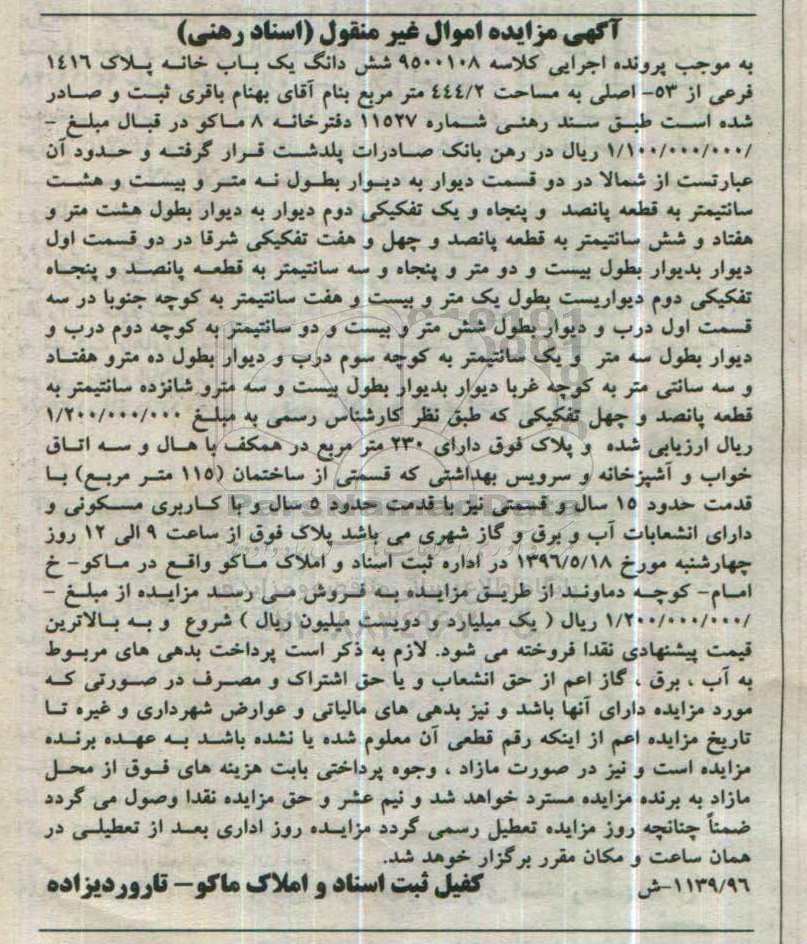 آگهی مزایده اموال غیر منقول (اسناد رهنی)
به موجب پرونده اجرایی کلاسه ۹۵۰۰۱۰۸ شش دانگ یک باب خانه پلاک ۱۴۱۶
فرعی از ۵۳- اصلی به مساحت ۴۴۴/۲ متر مربع بنام آقای بهنام باقری ثبت و صادر
شده است طبق سند رهنی شماره ۱۱۵۲۷ دفترخانه ۸ ماکو در قبال مبلغ -
/۱/۱۰۰/۰۰۰/۰۰۰ ریال در رهن بانک صادرات پلدشت قرار گرفته و حدود آن
عبارتست از شمالا در دو قسمت دیوار به دیوار بطول نه متر و بیست و هشت
سانتیمتر به قطعه پانصد و پنجاه و یک تفکیکی دوم دیوار به دیوار بطول هشت متر و
هفتاد و شش سانتیمتر به قطعه پانصد و چهل و هفت تفکیکی شرقا در دو قسمت اول
دیوار بدیوار بطول بیست و دو متر و پنجاه و سه سانتیمتر به قطعه پانصد و پنجاه
تفکیکی دوم دیواریست بطول یک متر و بیست و هفت سانتیمتر به کوچه جنوبا در سه
قسمت اول درب و دیوار بطول شش متر و بیست و دو سانتیمتر به کوچه دوم درب و
دیوار بطول سه متر و یک سانتیمتر به کوچه سوم درب و دیوار بطول ده مترو هفتاد
و سه سانتی متر به کوچه غربا دیوار بدیوار بطول بیست و سه مترو شانزده سانتیمتر به
قطعه پانصد و چهل تفکیکی که طبق نظر کارشناس رسمی به مبلغ ۱/۲۰۰/۰۰۰/۰۰۰
ریال ارزیابی شده و پلاک فوق دارای ۲۳۰ متر مربع در همکف با هال و سه اتاق
خواب و آشپزخانه و سرویس بهداشتی که قسمتی از ساختمان (۱۱۵ متر مربع) با
قدمت حدود ۱۵ سال و قسمتی نیز با قدمت حدود ۵ سال و با کاربری مسکونی و
دارای انشعابات آب و برق و گاز شهری می باشد پلاک فوق از ساعت ۹ الی ۱۲ روز
چهارشنبه مورخ ۱۳۹۶/۵/۱۸ در اداره ثبت اسناد و املاک ماکو واقع در ماکو- خ
امام- کوچه دماوند از طریق مزایده به فروش می رسد مزایده از مبلغ -
/۱/۲۰۰/۰۰۰/۰۰۰ ریال ( یک میلیارد و دویست میلیون ریال ) شروع و به بالاترین
قیمت پیشنهادی نقدا فروخته می شود. لازم به ذکر است پرداخت بدهی های مربوط
به آب ، برق ، گاز اعم از حق انشعاب و یا حق اشتراک و مصرف در صورتی که
مورد مزایده دارای آنها باشد و نیز بدهی های مالیاتی و عوارض شهرداری و غیره تا
تاریخ مزایده اعم از اینکه رقم قطعی آن معلوم شده یا نشده باشد به عهده برنده
مزایده است و نیز در صورت مازاد ، وجوه پرداختی بابت هزینه های فوق از محل
مازاد به برنده مزایده مسترد خواهد شد و نیم عشر و حق مزایده نقدا وصول می گردد
ضمناً چنانچه روز مزایده تعطیل رسمی گردد مزایده روز اداری بعد از تعطیلی در
همان ساعت و مکان مقرر برگزار خوهد شد.
۱۱۳۹/۹۶-ش کفیل ثبت اسناد و املاک ماکو- تاروردیزاده